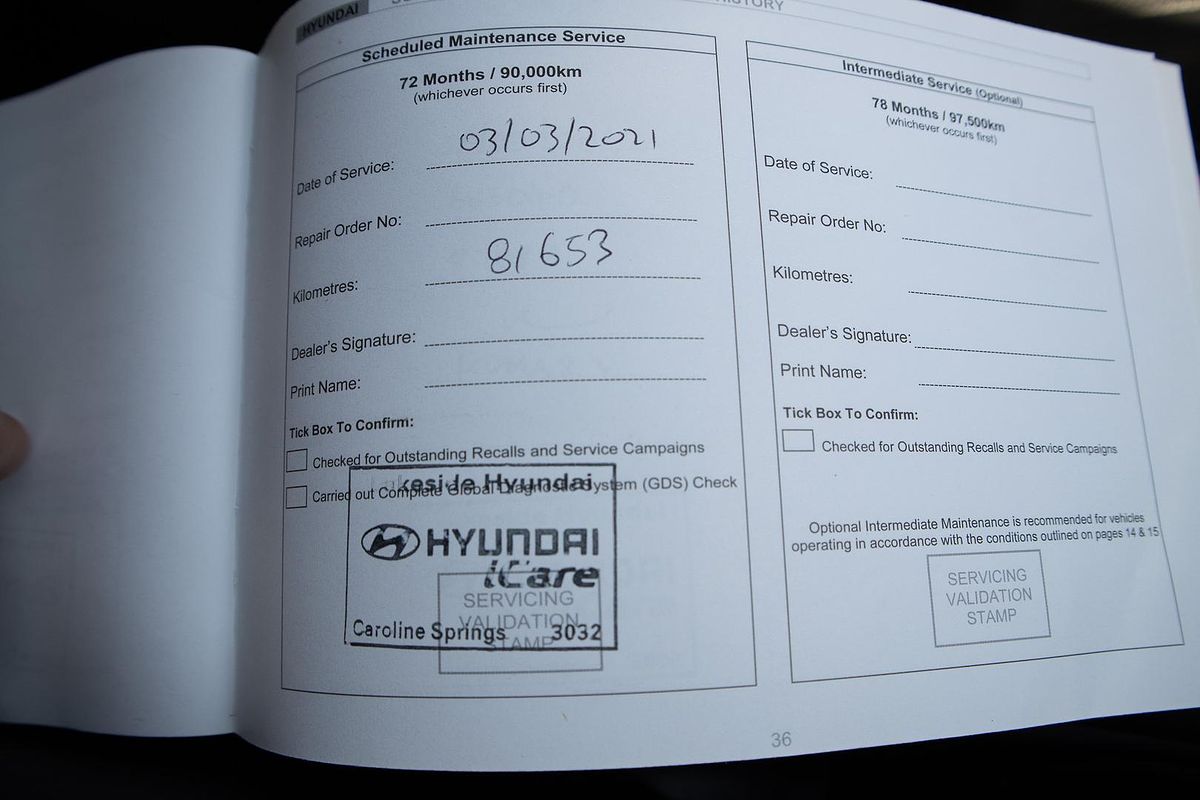 HYUNDAI
Scheduled Maintenance Service
72 Months / 90,000km
(whichever occurs first)
Date of Service: 03/03/2021
Repair Order No:
Kilometres: 81653
Dealer's Signature:
Print Name:
Tick Box To Confirm:
Checked for Outstanding Recalls and Service Campaigns
Carried out Complete Global Diagnostic System (GDS) Check
keside Hyundai
HYUNDAI
iCare
SERVICING
VALIDATION
STAMP
Caroline Springs 3032
Intermediate Service (Optional)
78 Months / 97,500km
(whichever occurs first)
Date of Service:
Repair Order No:
Kilometres:
Dealer's Signature:
Print Name:
Tick Box To Confirm:
Checked for Outstanding Recalls and Service Campaigns
Optional Intermediate Maintenance is recommended for vehicles
operating in accordance with the conditions outlined on pages 14 & 15
SERVICING
VALIDATION
STAMP
36